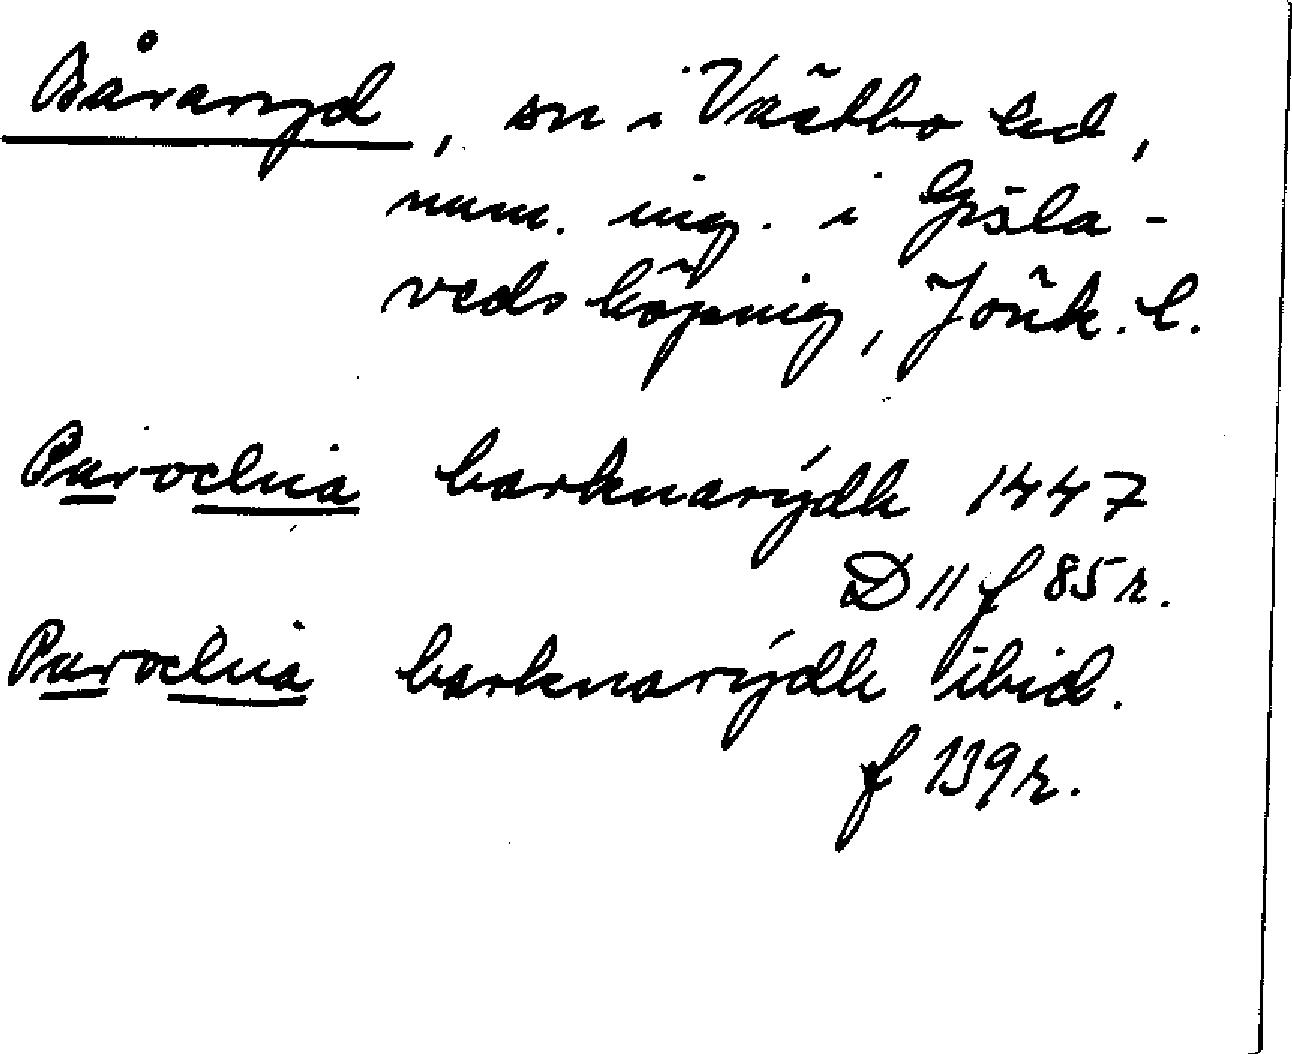 Båraryd, sn i Västbo hd,
num. ing. i Gisla-
veds köping, Jönk. l.
Parochia barknarydh 1447
D 11 f 85 r.
Parochia barknarydh ibid.
f 139 r.